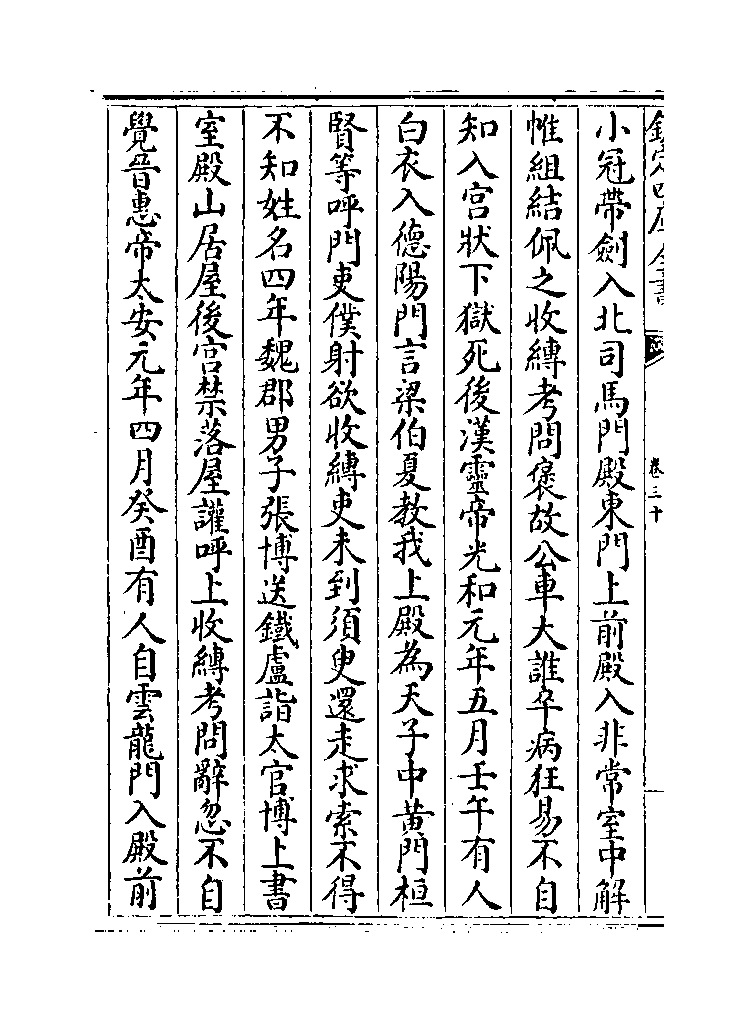 欽定四庫全書
卷三十
小冠帶劍入北司馬門殿東門上前殿入非常室中解
帷組結佩之收縛考問褒故公車大誰卒病狂易不自
知入宫狀下獄死後漢靈帝光和元年五月壬午有人
白衣入德陽門言梁伯夏教我上殿為天子中黄門桓
賢等呼門吏僕射欲收縛吏未到須臾還走求索不得
不知姓名四年魏郡男子張博送鐵盧詣太官博上書
室殿山居屋後宫禁落屋讙呼上收縛考問辭忽不自
覺晉惠帝太安元年四月癸酉有人自雲龍門入殿前